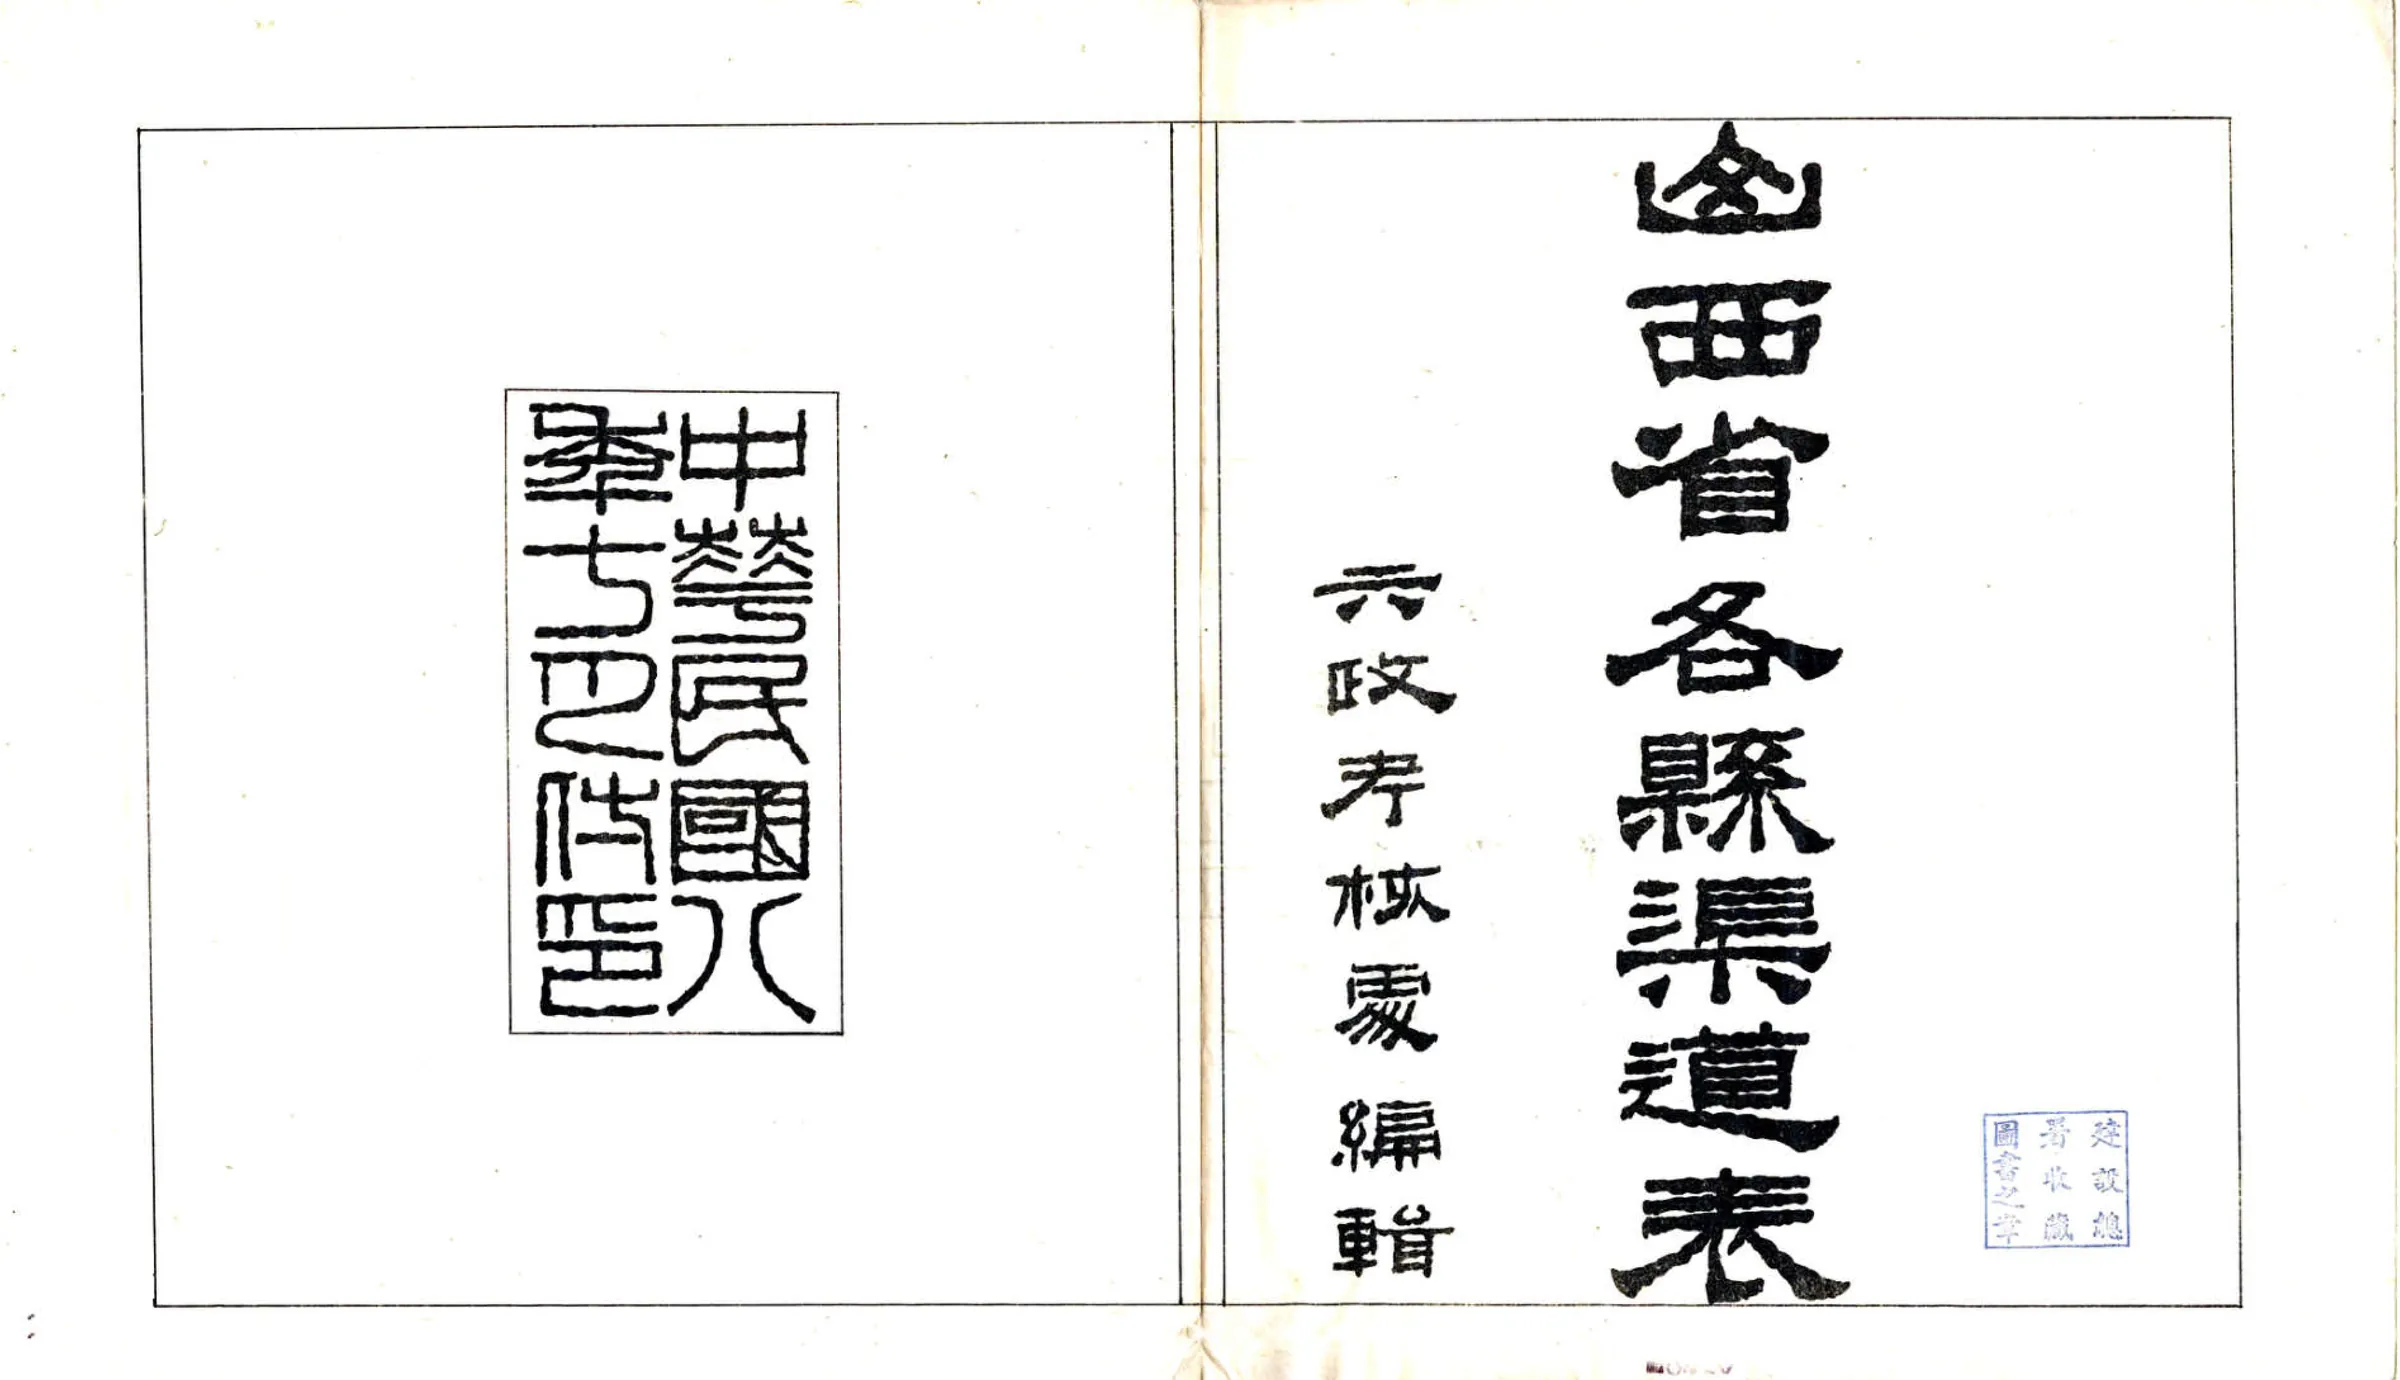 山西省各縣渠道表
六政考核處編輯
中華民國八
年七月付印
建設總
署收藏
圖書之章